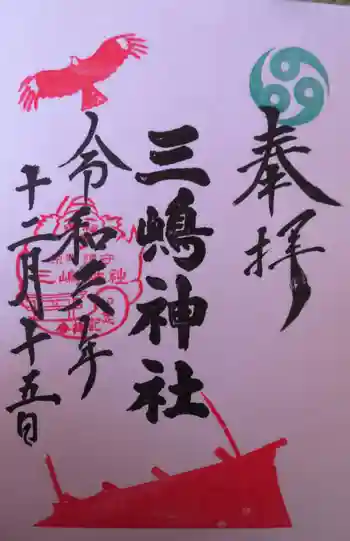 奉拝
三嶋神社
令和六年
十二月十五日